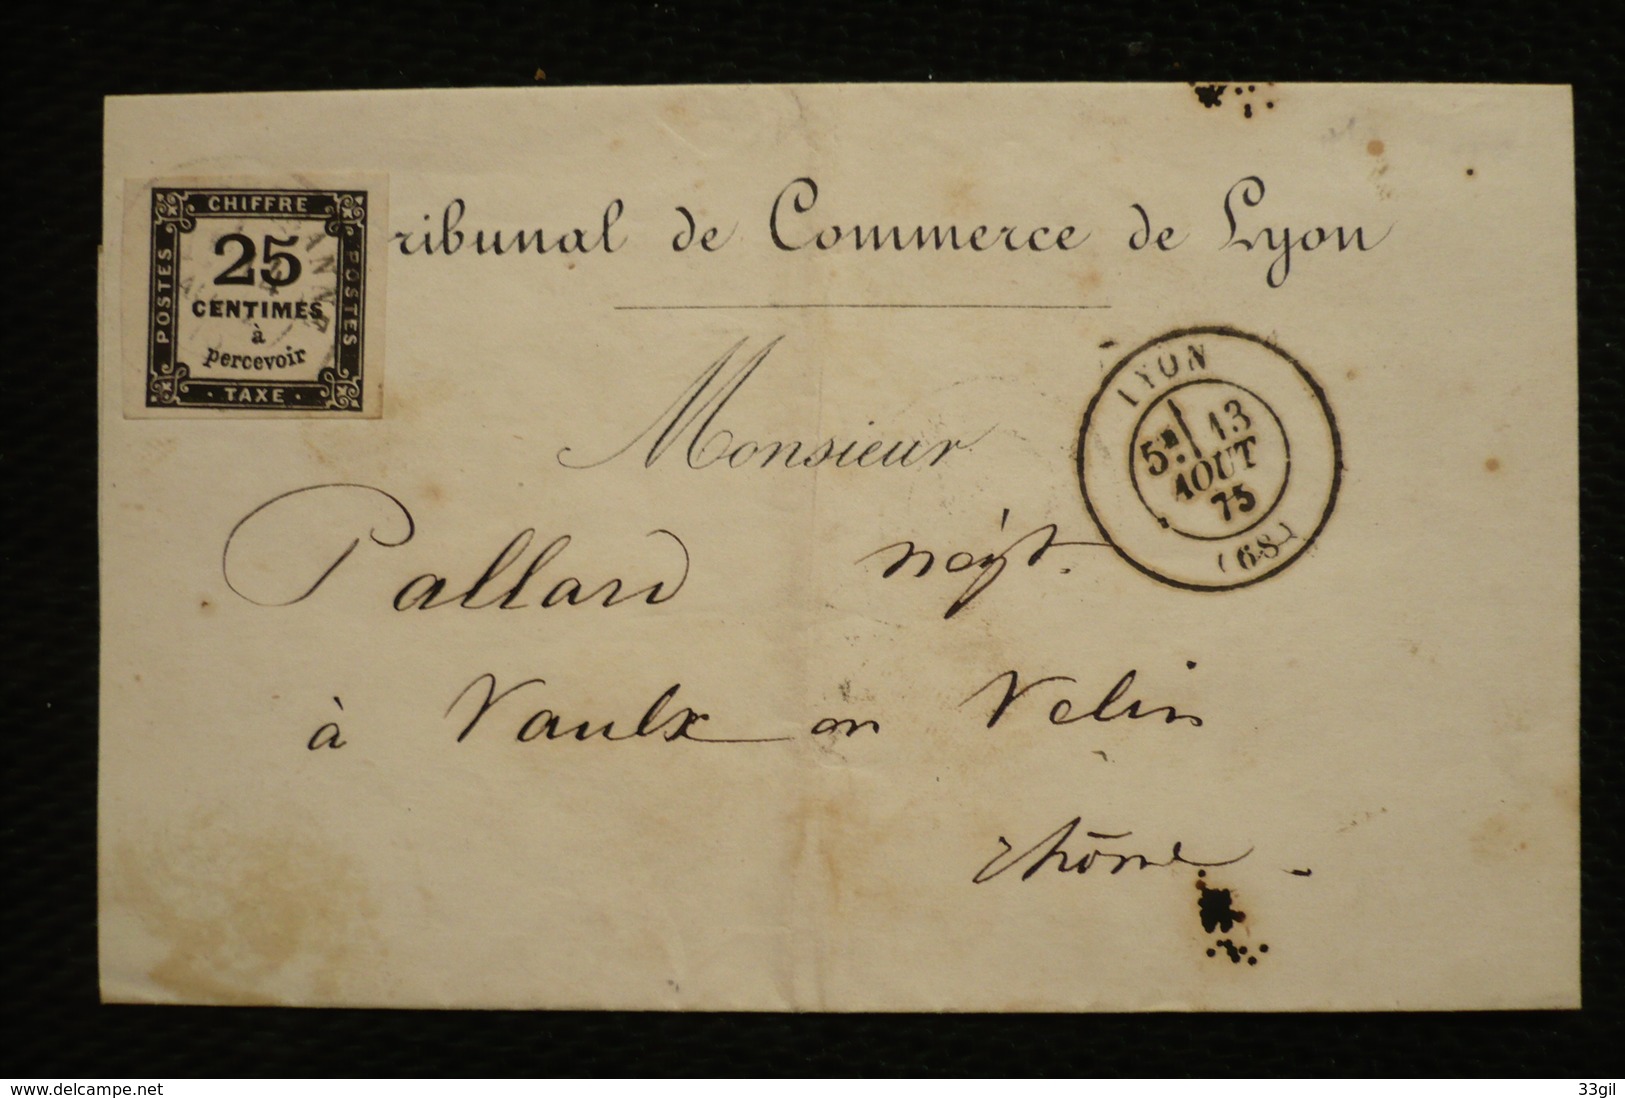 CHIFFRE
POSTES
25
CENTIMES
à
percevoir
POSTES
· TAXE ·
ribunal de Commerce de Lyon
Monsieur
LYON
5E 13
AOUT
75
(68)
Pallard négt.
à Vaulx en Velin
Rhône
www.delcampe.net
33gil